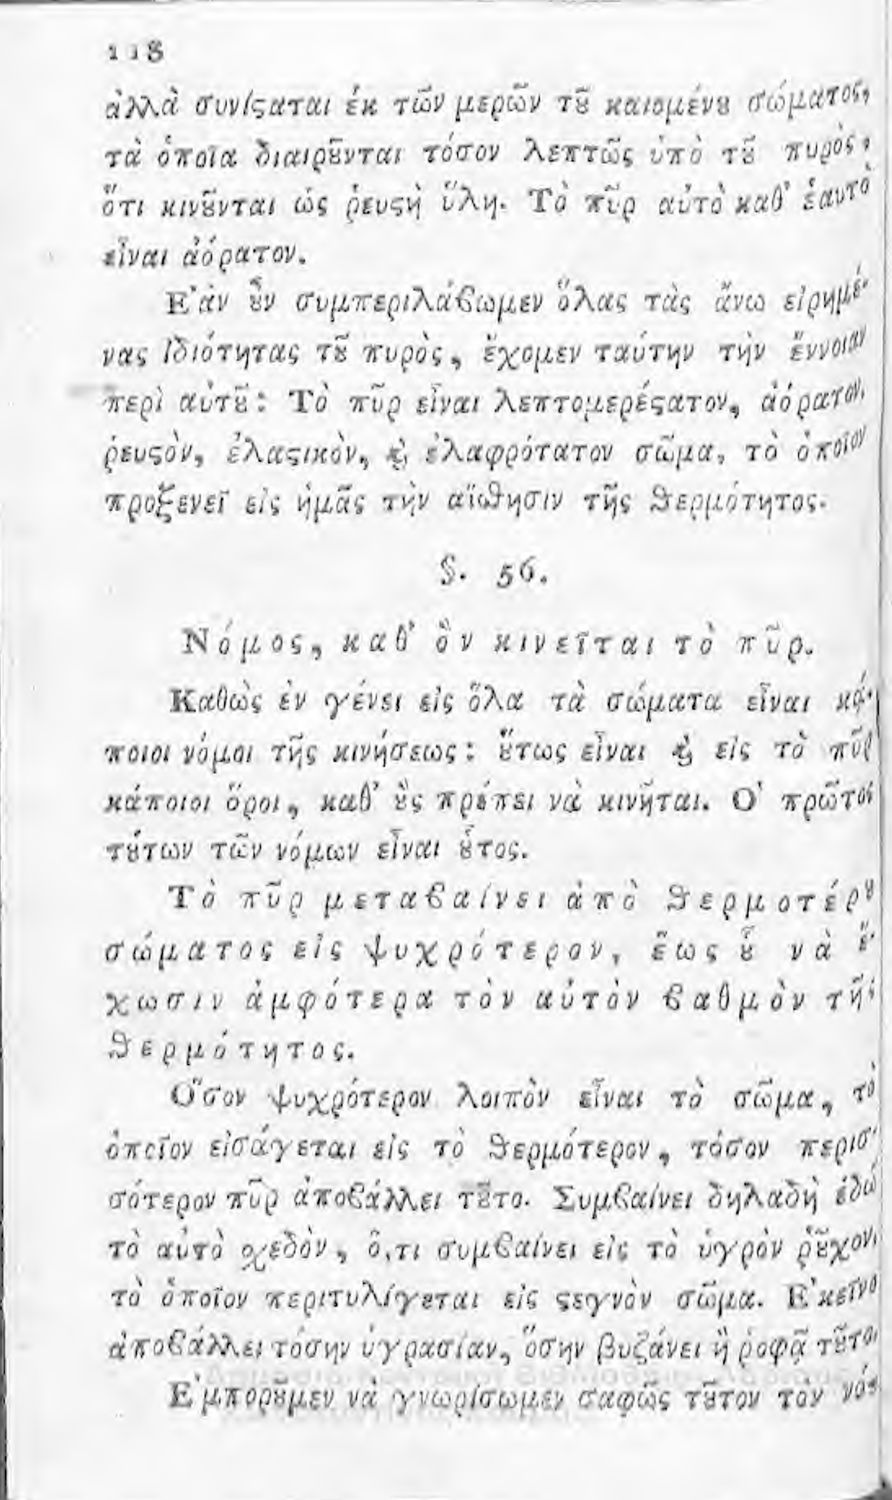 118
ἀλλὰ συνίϛαται ἐκ τῶν μερῶν τȣ͂ καιομένȣ σώματος,
τὰ ὁποῖα διαιρȣ͂νται τόσον λεπτῶς ὑπὸ τȣ͂ πυρὸς,
ὅτι κινȣ͂νται ὡς ῥευϛὴ ὕλη. Τὸ πῦρ αὐτὸ καθ᾽ ἑαυτὸ
εἶναι ἀόρατον.
Ε᾽ὰν ȣ̓͂ν συμπεριλάϐωμεν ὅλας τὰς ἄνω εἰρημέ-
νας ἰδιότητας τȣ͂ πυρὸς, ἔχομεν ταύτην τὴν ἔννοιαν
περὶ αὐτȣ͂: Τὸ πῦρ εἶναι λεπτομερέϛατον, ἀόρατον,
ῥευϛὸν, ἐλαϛικὸν, ϗ ἐλαφρότατον σῶμα, τὸ ὁποῖον
προξενεῖ εἰς ἡμᾶς τὴν αἴσθησιν τῆς ϑερμότητος.
§. 56.
Νόμος, καθ᾽ ὃν κινεῖται τὸ πῦρ.
Καθὼς ἐν γένει εἰς ὅλα τὰ σώματα εἶναι κά-
ποιοι νόμοι τῆς κινήσεως: ȣ̔́τως εἶναι ϗ εἰς τὸ πῦρ
κάποιοι ὅροι, καθ᾽ ȣ̔̀ς πρέπει νὰ κινῆται. Ο᾽ πρῶτος
τȣ́των τῶν νόμων εἶναι ȣ̔͂τος.
Τὸ πῦρ μεταϐαίνει ἀπὸ ϑερμοτέρȣ
σώματος εἰς ψυχρότερον, ἕως ȣ̔͂ νὰ ἔ-
χωσιν ἀμφότερα τὸν αὐτὸν ϐαθμὸν τῆς
ϑερμότητος.
Ο῞σον ψυχρότερον λοιπὸν εἶναι τὸ σῶμα, τὸ
ὁποῖον εἰσάγεται εἰς τὸ ϑερμότερον, τόσον περισ-
σότερον πῦρ ἀποϐάλλει τȣ͂το. Συμϐαίνει δηλαδὴ ἐδῶ
τὸ αὐτὸ σχεδὸν, ὅ,τι συμϐαίνει εἰς τὸ ὑγρὸν ῥȣ͂χον,
τὸ ὁποῖον περιτυλίγεται εἰς ϛεγνὸν σῶμα. Ε᾽κεῖνο
ἀποϐάλλει τόσην ὑγρασίαν, ὅσην βυζάνει ἢ ῥοφᾷ τȣ͂το.
Ε᾽μπορȣ͂μεν νὰ γνωρίσωμεν σαφῶς τȣ͂τον τὸν νό-